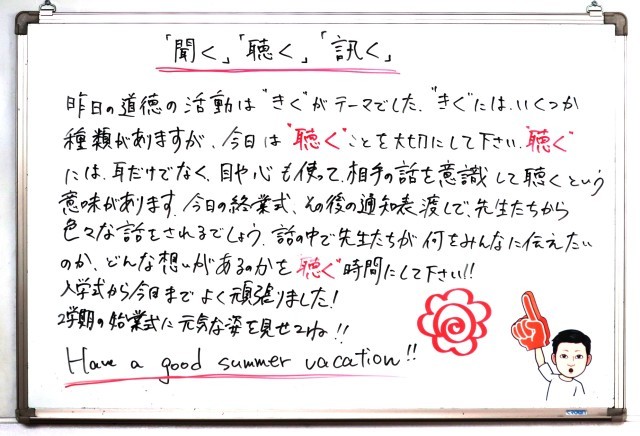 「聞く」「聴く」「訊く」
昨日の道徳の活動は"きく"がテーマでした。"きく"には、いくつか
種類がありますが、今日は"聴く"ことを大切にして下さい。"聴く"
には、耳だけでなく、目や心も使って、相手の話を意識して聴くという
意味があります。今日の終業式、その後の通知表渡しで、先生たちから
色々な話をされるでしょう。話の中で先生たちが何をみんなに伝えたい
のか、どんな想いがあるのかを"聴く"時間にして下さい!!
入学式から今日までよく頑張りました!
2学期の始業式に元気な姿を見せてね!!
Have a good summer vacation!!